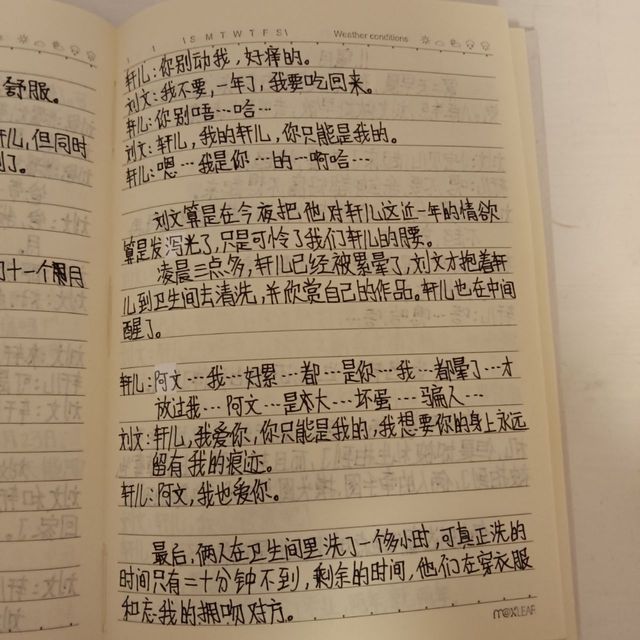 S M T W T F S
Weather conditions
轩儿：你别动我，好痒的。
刘文：我不要，一年了，我要吃回来。
轩儿：你别唔…哈…
刘文：轩儿，我的轩儿，你只能是我的。
轩儿：嗯…我是你…的…啊哈…
刘文算是在今夜把他对轩儿这近一年的情欲
算是发泻光了，只是可怜了我们轩儿的腰。
凌晨三点多，轩儿已经被累晕了，刘文才抱着轩
儿到卫生间去清洗，并欣赏自己的作品。轩儿也在中间
醒了。
轩儿：阿文…我…好累…都…是你…我…都晕了…才
放过我…阿文…是大…坏蛋…骗人…
刘文：轩儿，我爱你，你只能是我的，我想要你的身上永远
留有我的痕迹。
轩儿：阿文，我也爱你。
最后，俩人在卫生间里洗了一个多小时，可真正洗的
时间只有二十分钟不到，剩余的时间，他们在穿衣服
和忘我的拥吻对方。
MAXLEAF
舒服。
儿，但同时
了。
十一个月